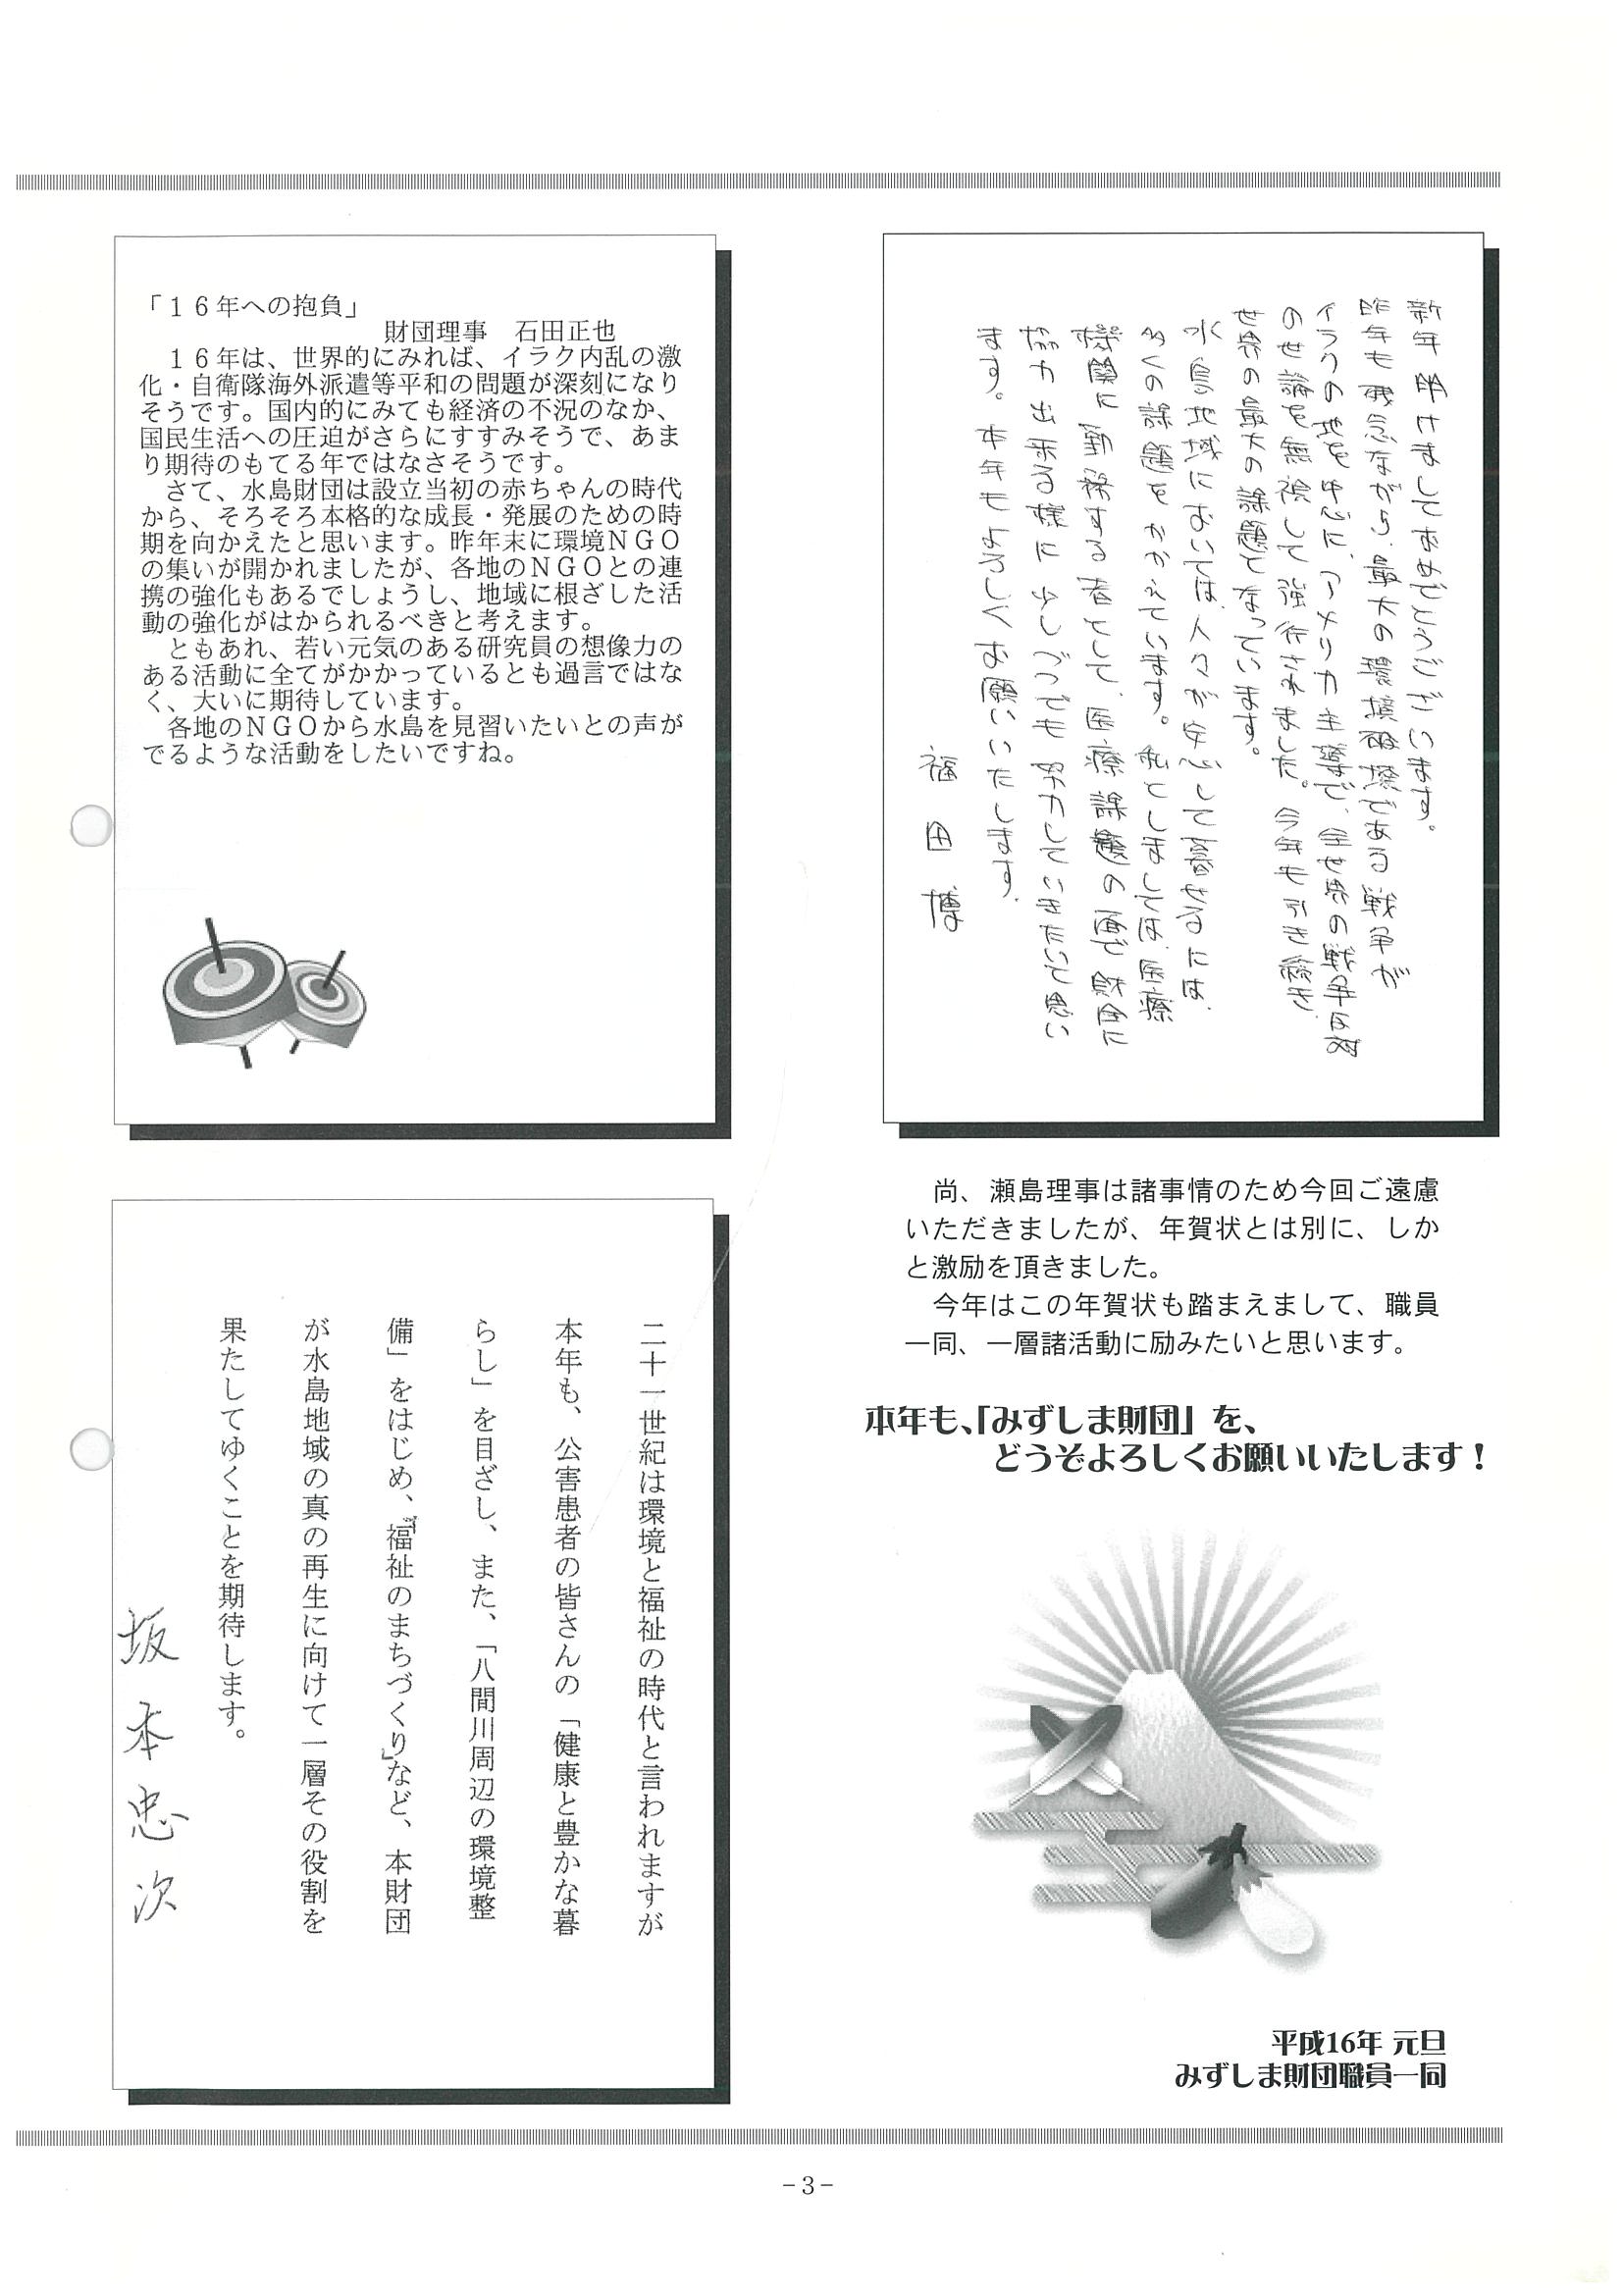 「１６年への抱負」
財団理事　石田正也
　１６年は、世界的にみれば、イラク内乱の激
化・自衛隊海外派遣等平和の問題が深刻になり
そうです。国内的にみても経済の不況のなか、
国民生活への圧迫がさらにすすみそうで、あま
り期待のもてる年ではなさそうです。
　さて、水島財団は設立当初の赤ちゃんの時代
から、そろそろ本格的な成長・発展のための時
期を向かえたと思います。昨年末に環境ＮＧＯ
の集いが開かれましたが、各地のＮＧＯとの連
携の強化もあるでしょうし、地域に根ざした活
動の強化がはかられるべきと考えます。
　ともあれ、若い元気のある研究員の想像力の
ある活動に全てがかかっているとも過言ではな
く、大いに期待しています。
　各地のＮＧＯから水島を見習いたいとの声が
でるような活動をしたいですね。
新年明けましておめでとうございます。
昨年も残念ながら、最大の環境破壊である戦争が
イラクの地を中心に、アメリカ主導で、全世界の戦争反対
の世論を無視して強行されました。今年も引き続き、
世界の最大の課題となっています。
水島地域においては、人々が安心して暮せるには、
多くの課題をかかえています。私としましては、医療
機関に勤務する者として、医療課題の面で財団に
協力出来る様に少しづつでも努力していきたいと思い
ます。本年もよろしくお願いいたします。
福田博
二十一世紀は環境と福祉の時代と言われますが
本年も、公害患者の皆さんの「健康と豊かな暮
らし」を目ざし、また、「八間川周辺の環境整
備」をはじめ、「福祉のまちづくり」など、本財団
が水島地域の真の再生に向けて一層その役割を
果たしてゆくことを期待します。
坂本忠次
　尚、瀬島理事は諸事情のため今回ご遠慮
いただきましたが、年賀状とは別に、しか
と激励を頂きました。
　今年はこの年賀状も踏まえまして、職員
一同、一層諸活動に励みたいと思います。
本年も、「みずしま財団」を、
どうぞよろしくお願いいたします！
平成16年 元旦
みずしま財団職員一同
-3-